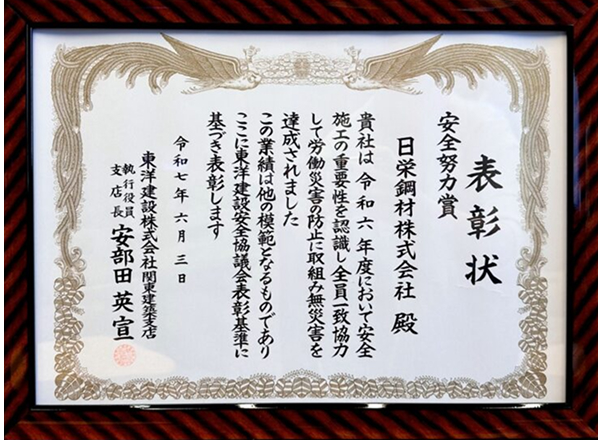 表彰状
安全努力賞
日栄鋼材株式会社 殿
貴社は令和六年度において安全
施工の重要性を認識し全員一致協力
して労働災害の防止に取組み無災害を
達成されました
この業績は他の模範となるものであり
ここに東洋建設安全協議会表彰基準に
基づき表彰します
令和七年六月三日
東洋建設株式会社関東建築支店
執行役員
支店長 安部田英宣